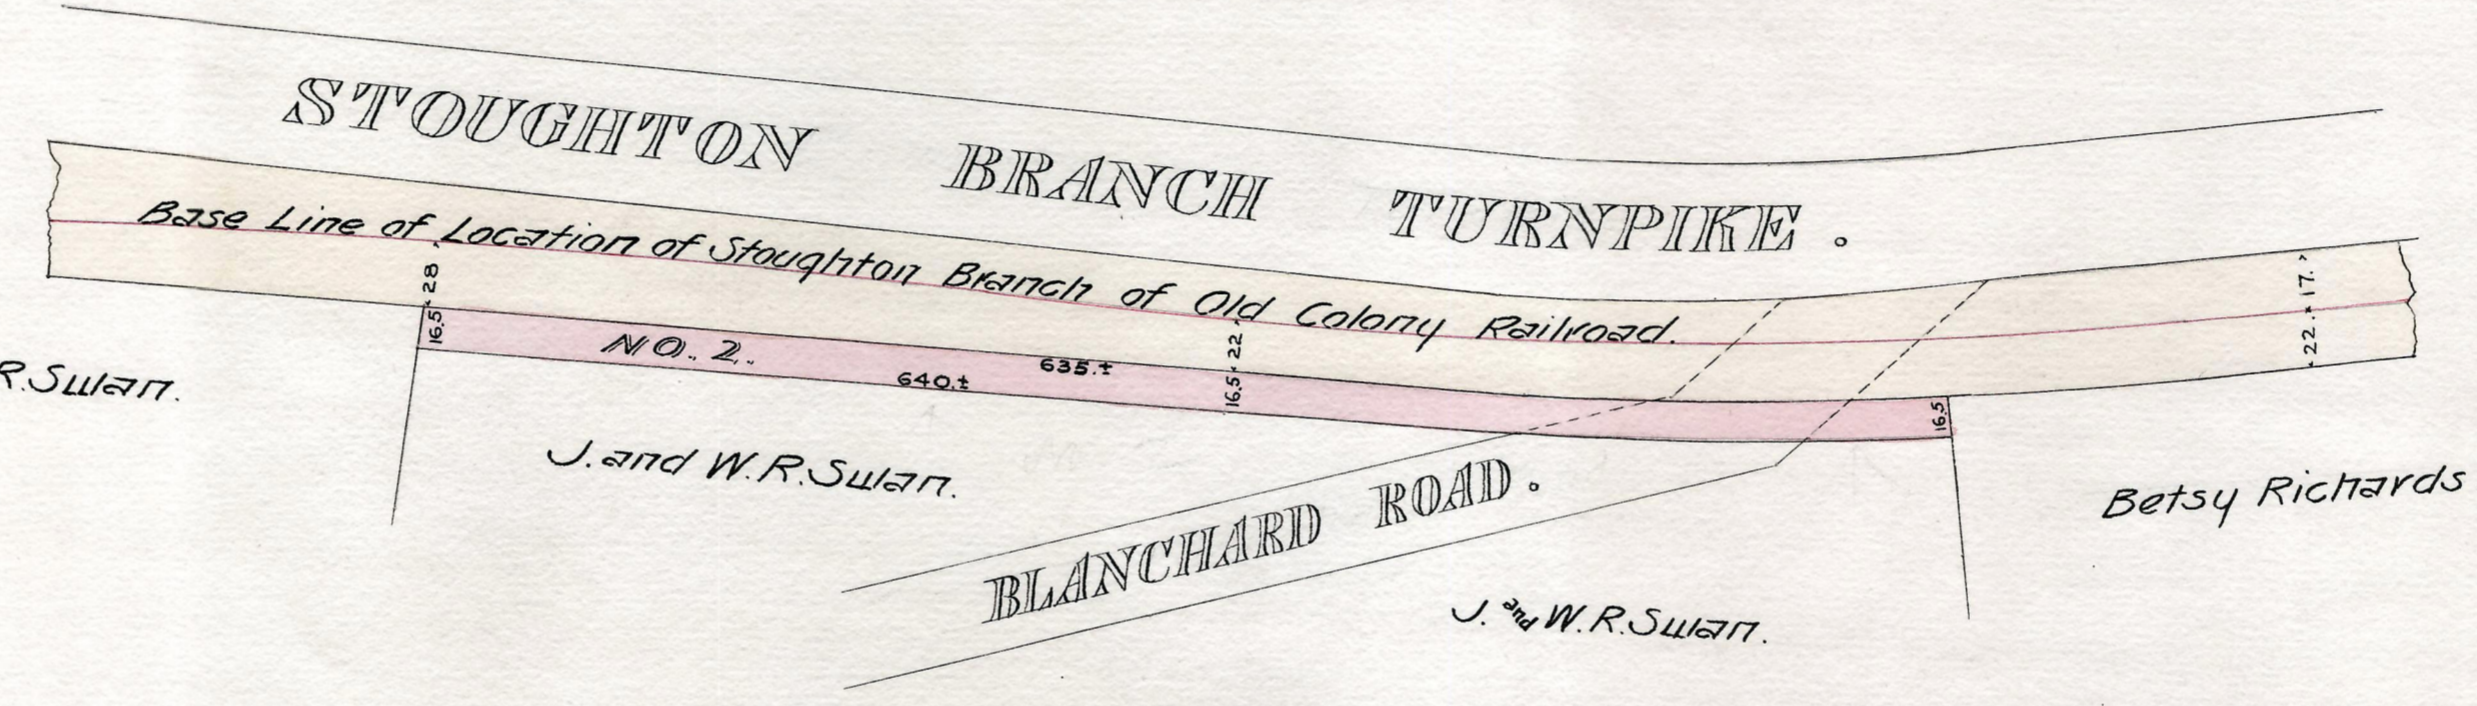 STOUGHTON BRANCH TURNPIKE.
Base Line of Location of Stoughton Branch of Old Colony Railroad.
28
16.5
NO. 2.
640.±
635.±
22
16.5
16.5
17.
22.
R. Swan.
J. and W. R. Swan.
BLANCHARD ROAD.
J. and W. R. Swan.
Betsy Richards